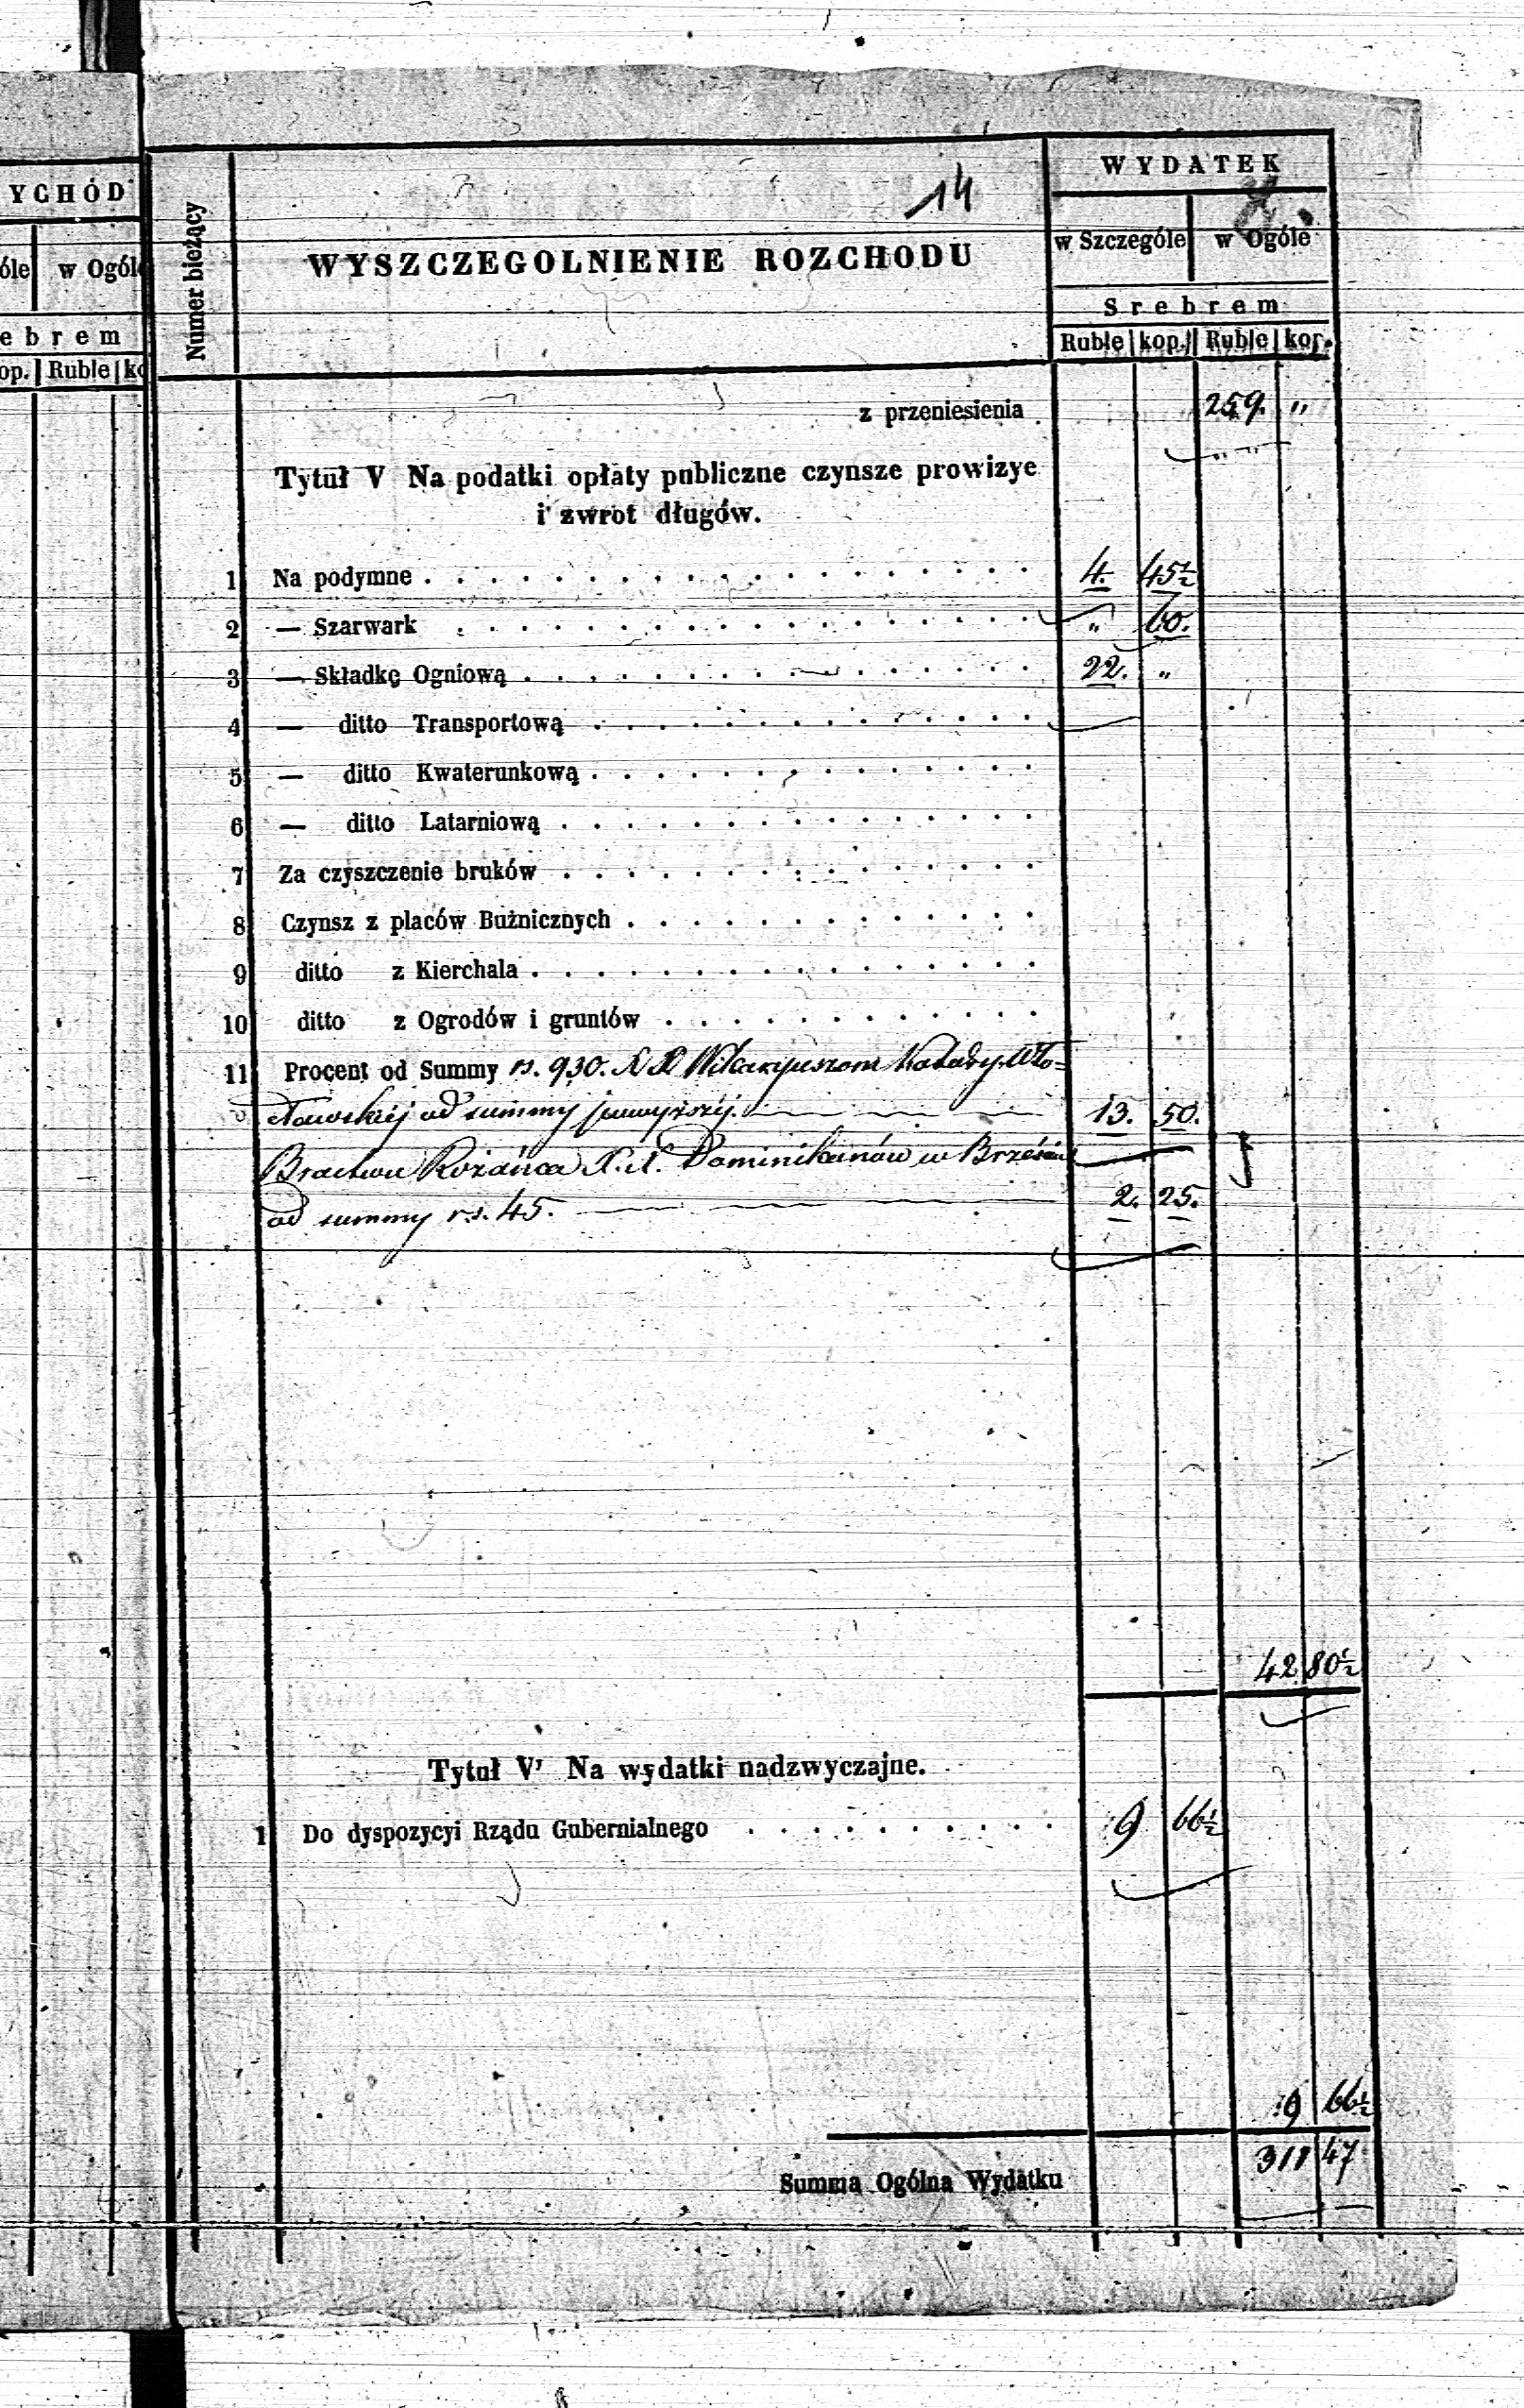 YCHÓD
óle w Ogól
ebrem
op. Ruble ko
14
Numer bieżący
WYSZCZEGOLNIENIE ROZCHODU
WYDATEK
w Szczególe w Ogóle
Srebrem
Ruble kop. Ruble kop.
z przeniesienia 259. "
Tytuł V Na podatki opłaty publiczne czynsze prowizye
i zwrot długów.
1 Na podymne . . . . 4. 45½
2 — Szarwark . . . . " 60.
3 — Składkę Ogniową . . . . 22. "
4 — ditto Transportową . . . .
5 — ditto Kwaterunkową . . . .
6 — ditto Latarniową . . . .
7 Za czyszczenie bruków . . . .
8 Czynsz z placów Bużnicznych . . . .
9 ditto z Kierchala . . . .
10 ditto z Ogrodów i gruntów . . . .
11 Procent od Summy rs. 930. Wikaryuszom
od summy 13. 50.
Bractwu Rożańca Dominikanów w Brześciu
od summy r.s. 45. 2. 25.
42 80½
Tytuł V Na wydatki nadzwyczajne.
1 Do dyspozycyi Rządu Gubernialnego . . . . 9 66½
9 66½
Summa Ogólna Wydatku 311 47